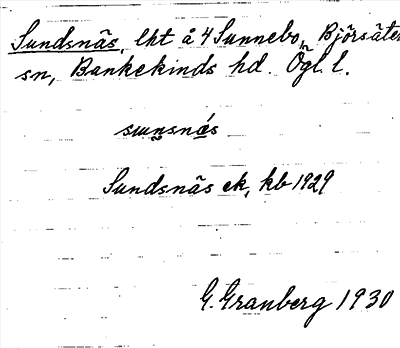 Sundsnäs, lht å 4 Sunnebo, Björsäters
sn, Bankekinds hd. Ögl. l.
Sundsnäs ek, kb 1929
G. Granberg 1930